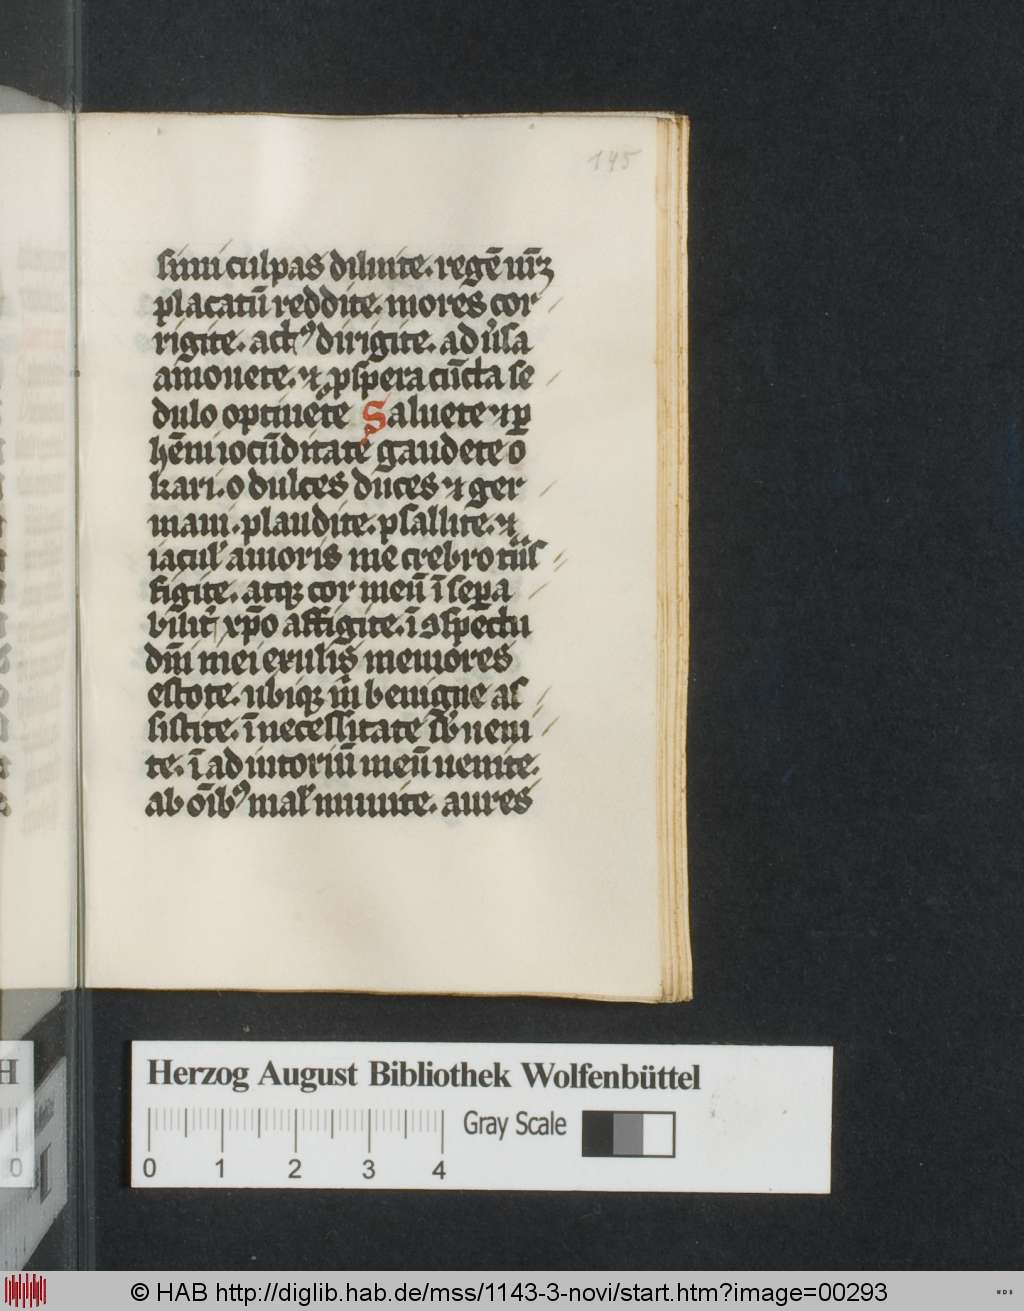 145
simi culpas diluite. regē ur̄ꝫ
placatū reddite. mores cor
rigite. actꝰ dirigite. adūsa
amouete. ⁊ ꝓspera cūcta se
dulo optinete Saluete ⁊ ꝑ
hēni iocūditate gaudete o
kari. o dulces duces ⁊ ger
mani. plaudite. psallite. ⁊
iacul̕ amoris me crebro
figite. atqꝫ cor meū ī seꝑa
bilit̕ xp̄o affigite. ī ꝯspectu
dn̄i mei exulis memores
estote. ubiqꝫ m̄ benigne as
sistite. ī necessitate ueni
te. ī adiutoriū meū uenite.
ab oībꝰ mal̕ munite. aures
Herzog August Bibliothek Wolfenbüttel
Gray Scale
0 1 2 3 4
© HAB http://diglib.hab.de/mss/1143-3-novi/start.htm?image=00293